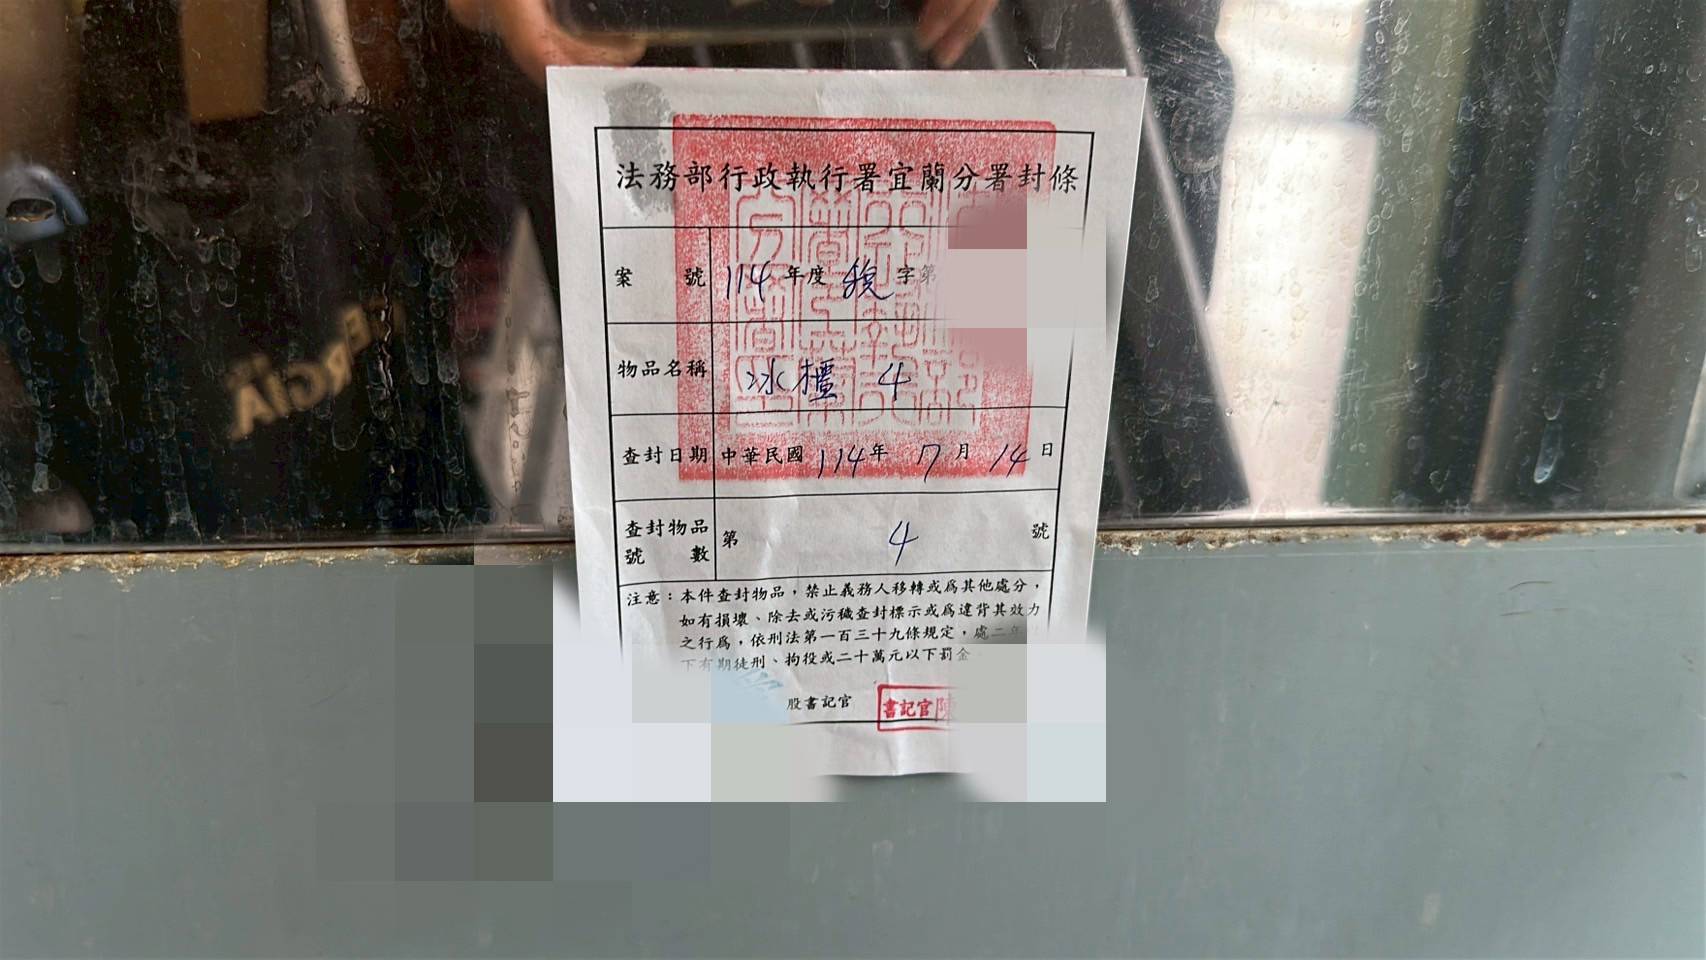 法務部行政執行署宜蘭分署封條
案號 114年度稅字第
物品名稱 冰櫃 4
查封日期 中華民國114年7月14日
查封物品號數 第 4 號
注意：本件查封物品，禁止義務人移轉或為其他處分，
如有損壞、除去或污穢查封標示或為違背其效力
之行為，依刑法第一百三十九條規定，處二年
下有期徒刑、拘役或二十萬元以下罰金
股書記官 書記官陳